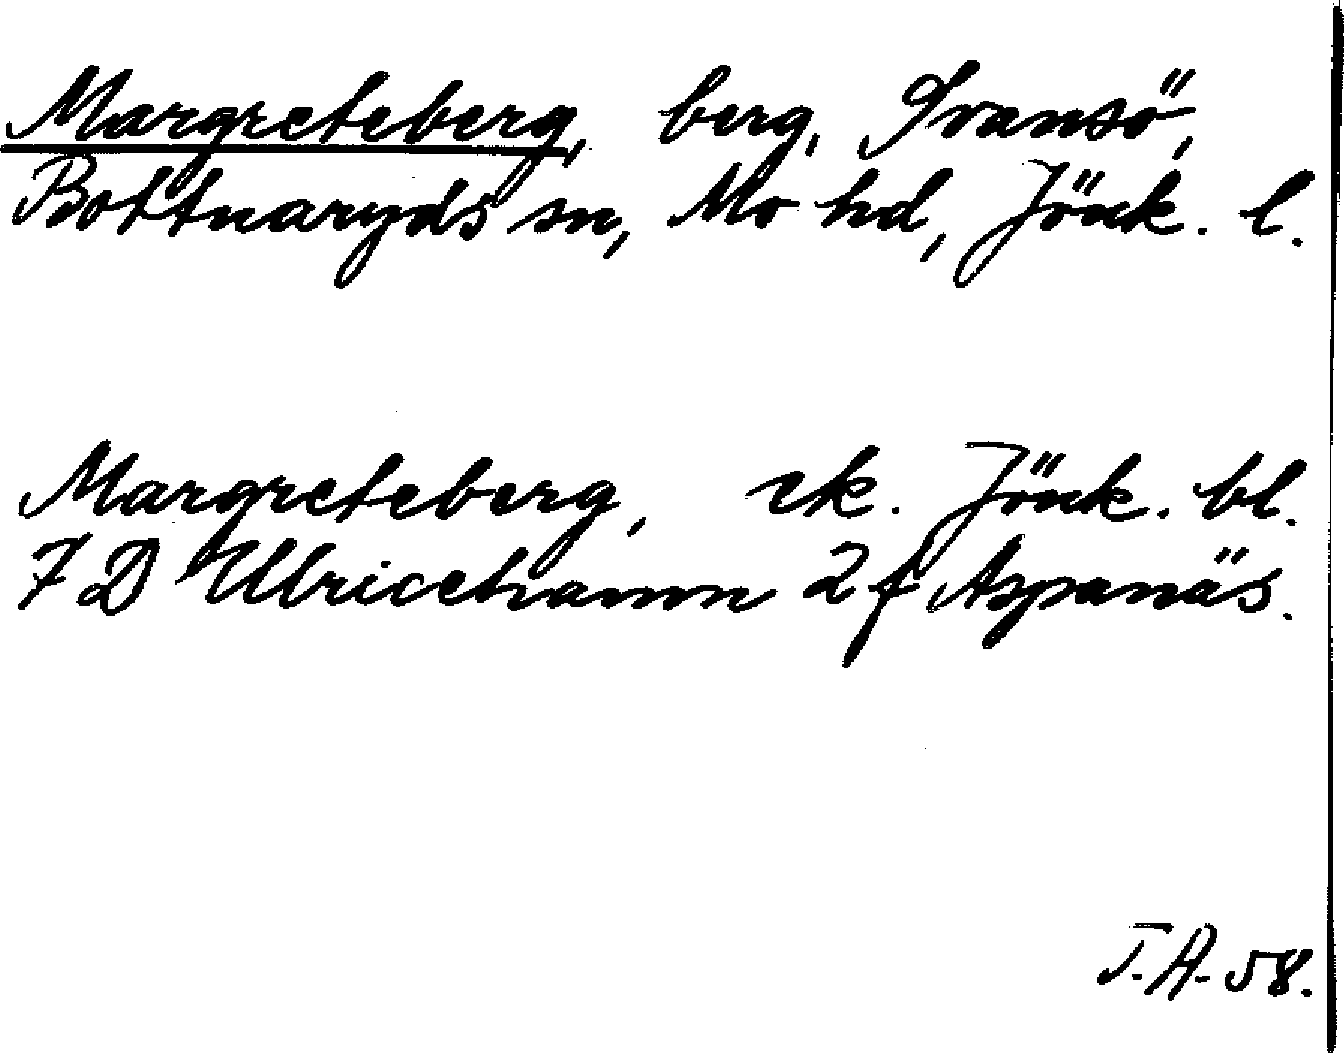 Margreteberg, berg, Svansö,
Bottnaryds sn, Mo hd, Jönk. l.
Margreteberg, ek. Jönk. bl.
7 D Ulricehamn 2 f Aspanäs.
T.A. 58.